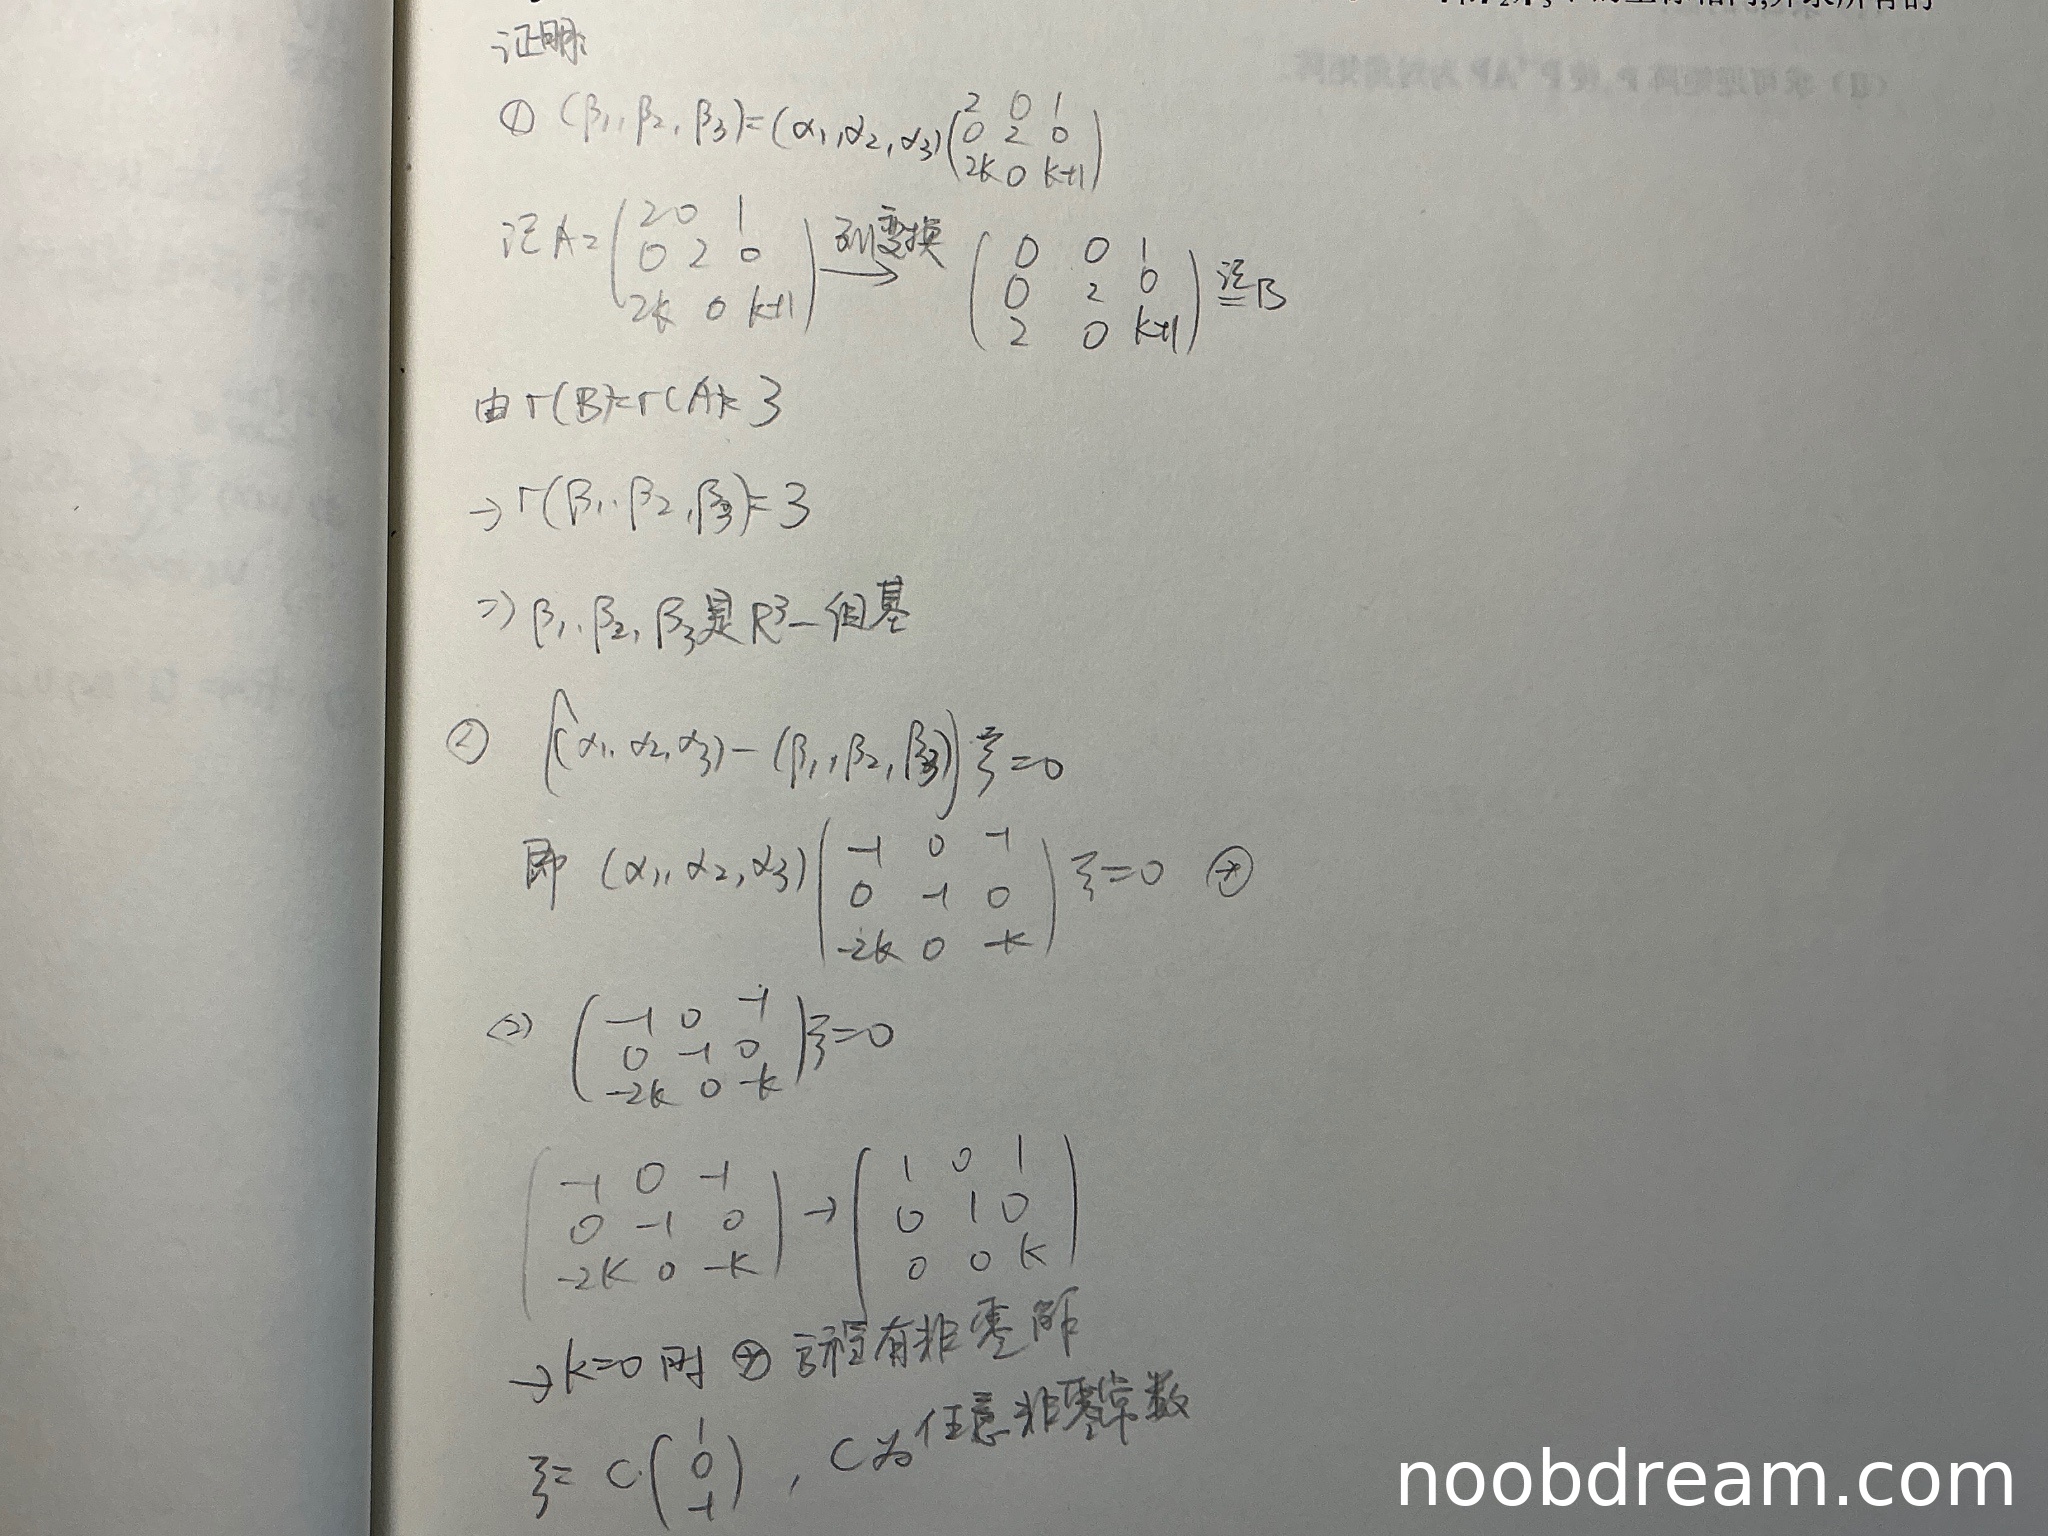 证明:
① (β₁, β₂, β₃)=(α₁,α₂,α₃)(2 0 1
0 2 0
2k 0 k+1)
记A=(2 0 1
0 2 0
2k 0 k+1) 列变换→ (0 0 1
0 2 0
2 0 k+1) 记= B
由 r(B)=r(A)=3
→ r(β₁.β₂,β₃)=3
⇒ β₁.β₂,β₃是R³一组基
② ((α₁.α₂,α₃)-(β₁,β₂,β₃))ξ=0
即 (α₁,α₂,α₃)(-1 0 -1
0 -1 0
-2k 0 -k)ξ=0 ⊛
(-1 0 -1
0 -1 0
-2k 0 -k)ξ=0
(-1 0 -1
0 -1 0
-2k 0 -k)→(1 0 1
0 1 0
0 0 k)
→k=0时 ⊛ 方程有非零解
ξ= C·(1
0
-1) , C为任意非零常数
noobdream.com